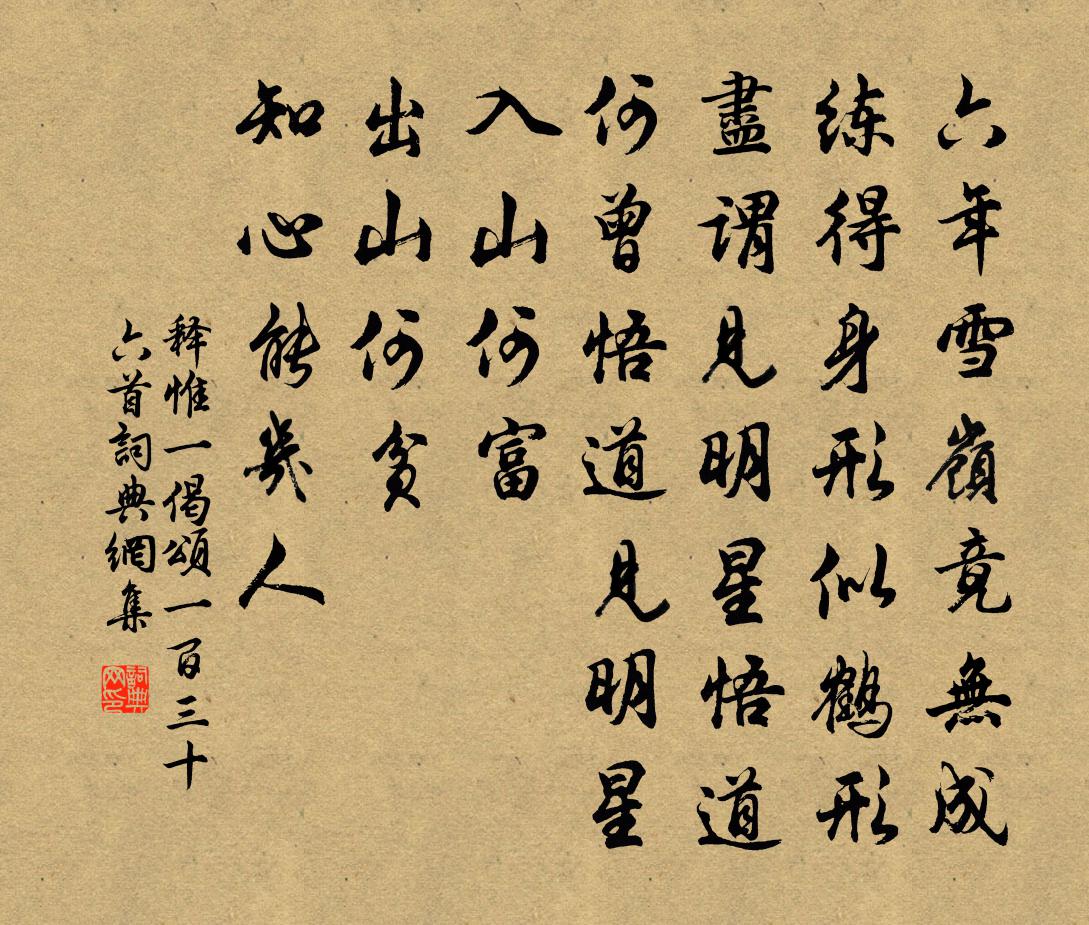 六年雪嶺竟無成
练得身形似鹤形
盡謂見明星悟道
何曾悟道見明星
入山何富
出山何貧
知心能幾人
释惟一偈頌一百三十
六首詞典網集
詞典
网印